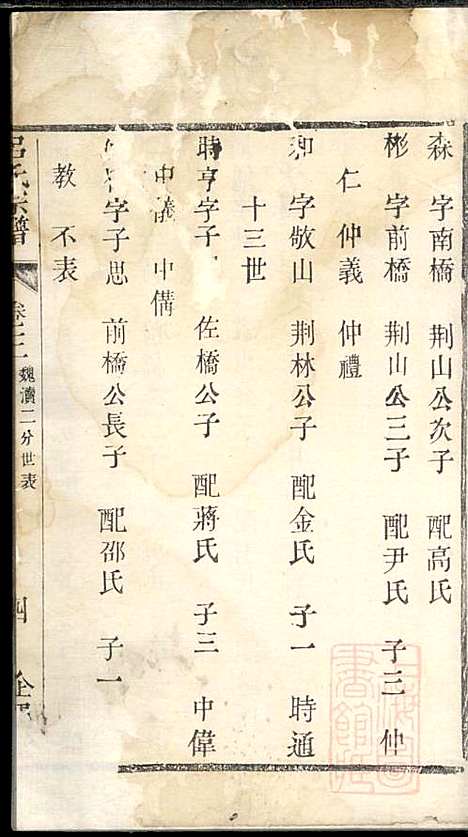 森 字南橋 荆山公次子 配高氏
彬 字前橋 荆山公三子 配尹氏 子三 仲
仁 仲義 仲禮
和 字敬山 荆林公子 配金氏 子一 時通
十三世
時亨字子 佐橋公子 配蔣氏 子三 中偉
中儀 中備
字子思 前橋公長子 配邵氏 子一
教 不表
呂氏宗譜 卷之二 魏灣二分世表 四